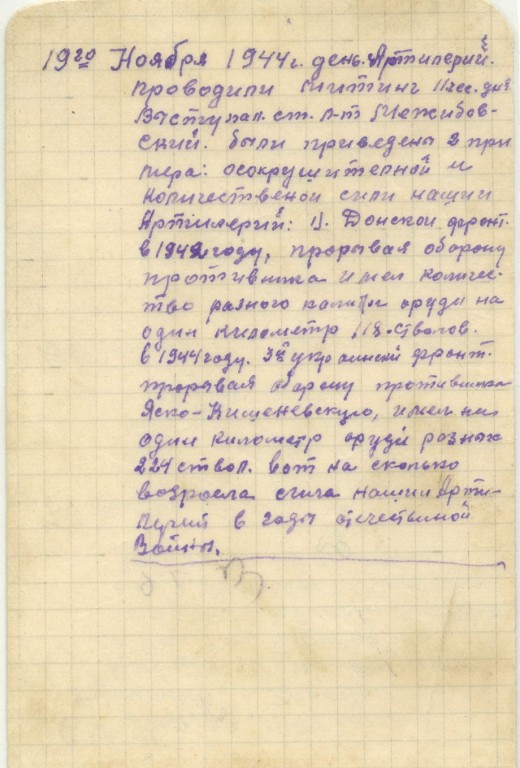 19го Ноября 1944г. день Артилерий.
проводили митинг 11 час. дня
Выступал. ст. л-т Межибов-
ский. были приведены 2 при
мера: осокрушителной и
количественой сили нашии
Артилерий: 1). Донской фронт.
в 1942 году, прорывая оборону
противника имел количес-
тво разного орудй на
один километр 118-стволов.
в 1944 году. 3й украинский фронт.
прорывая оборону противника
Яско-Кишеневскую, имел на
один километр орудй разных
224 ствол. вот на сколько
возросла сила нашии Арти-
лерий в годы отечественой
Войны.